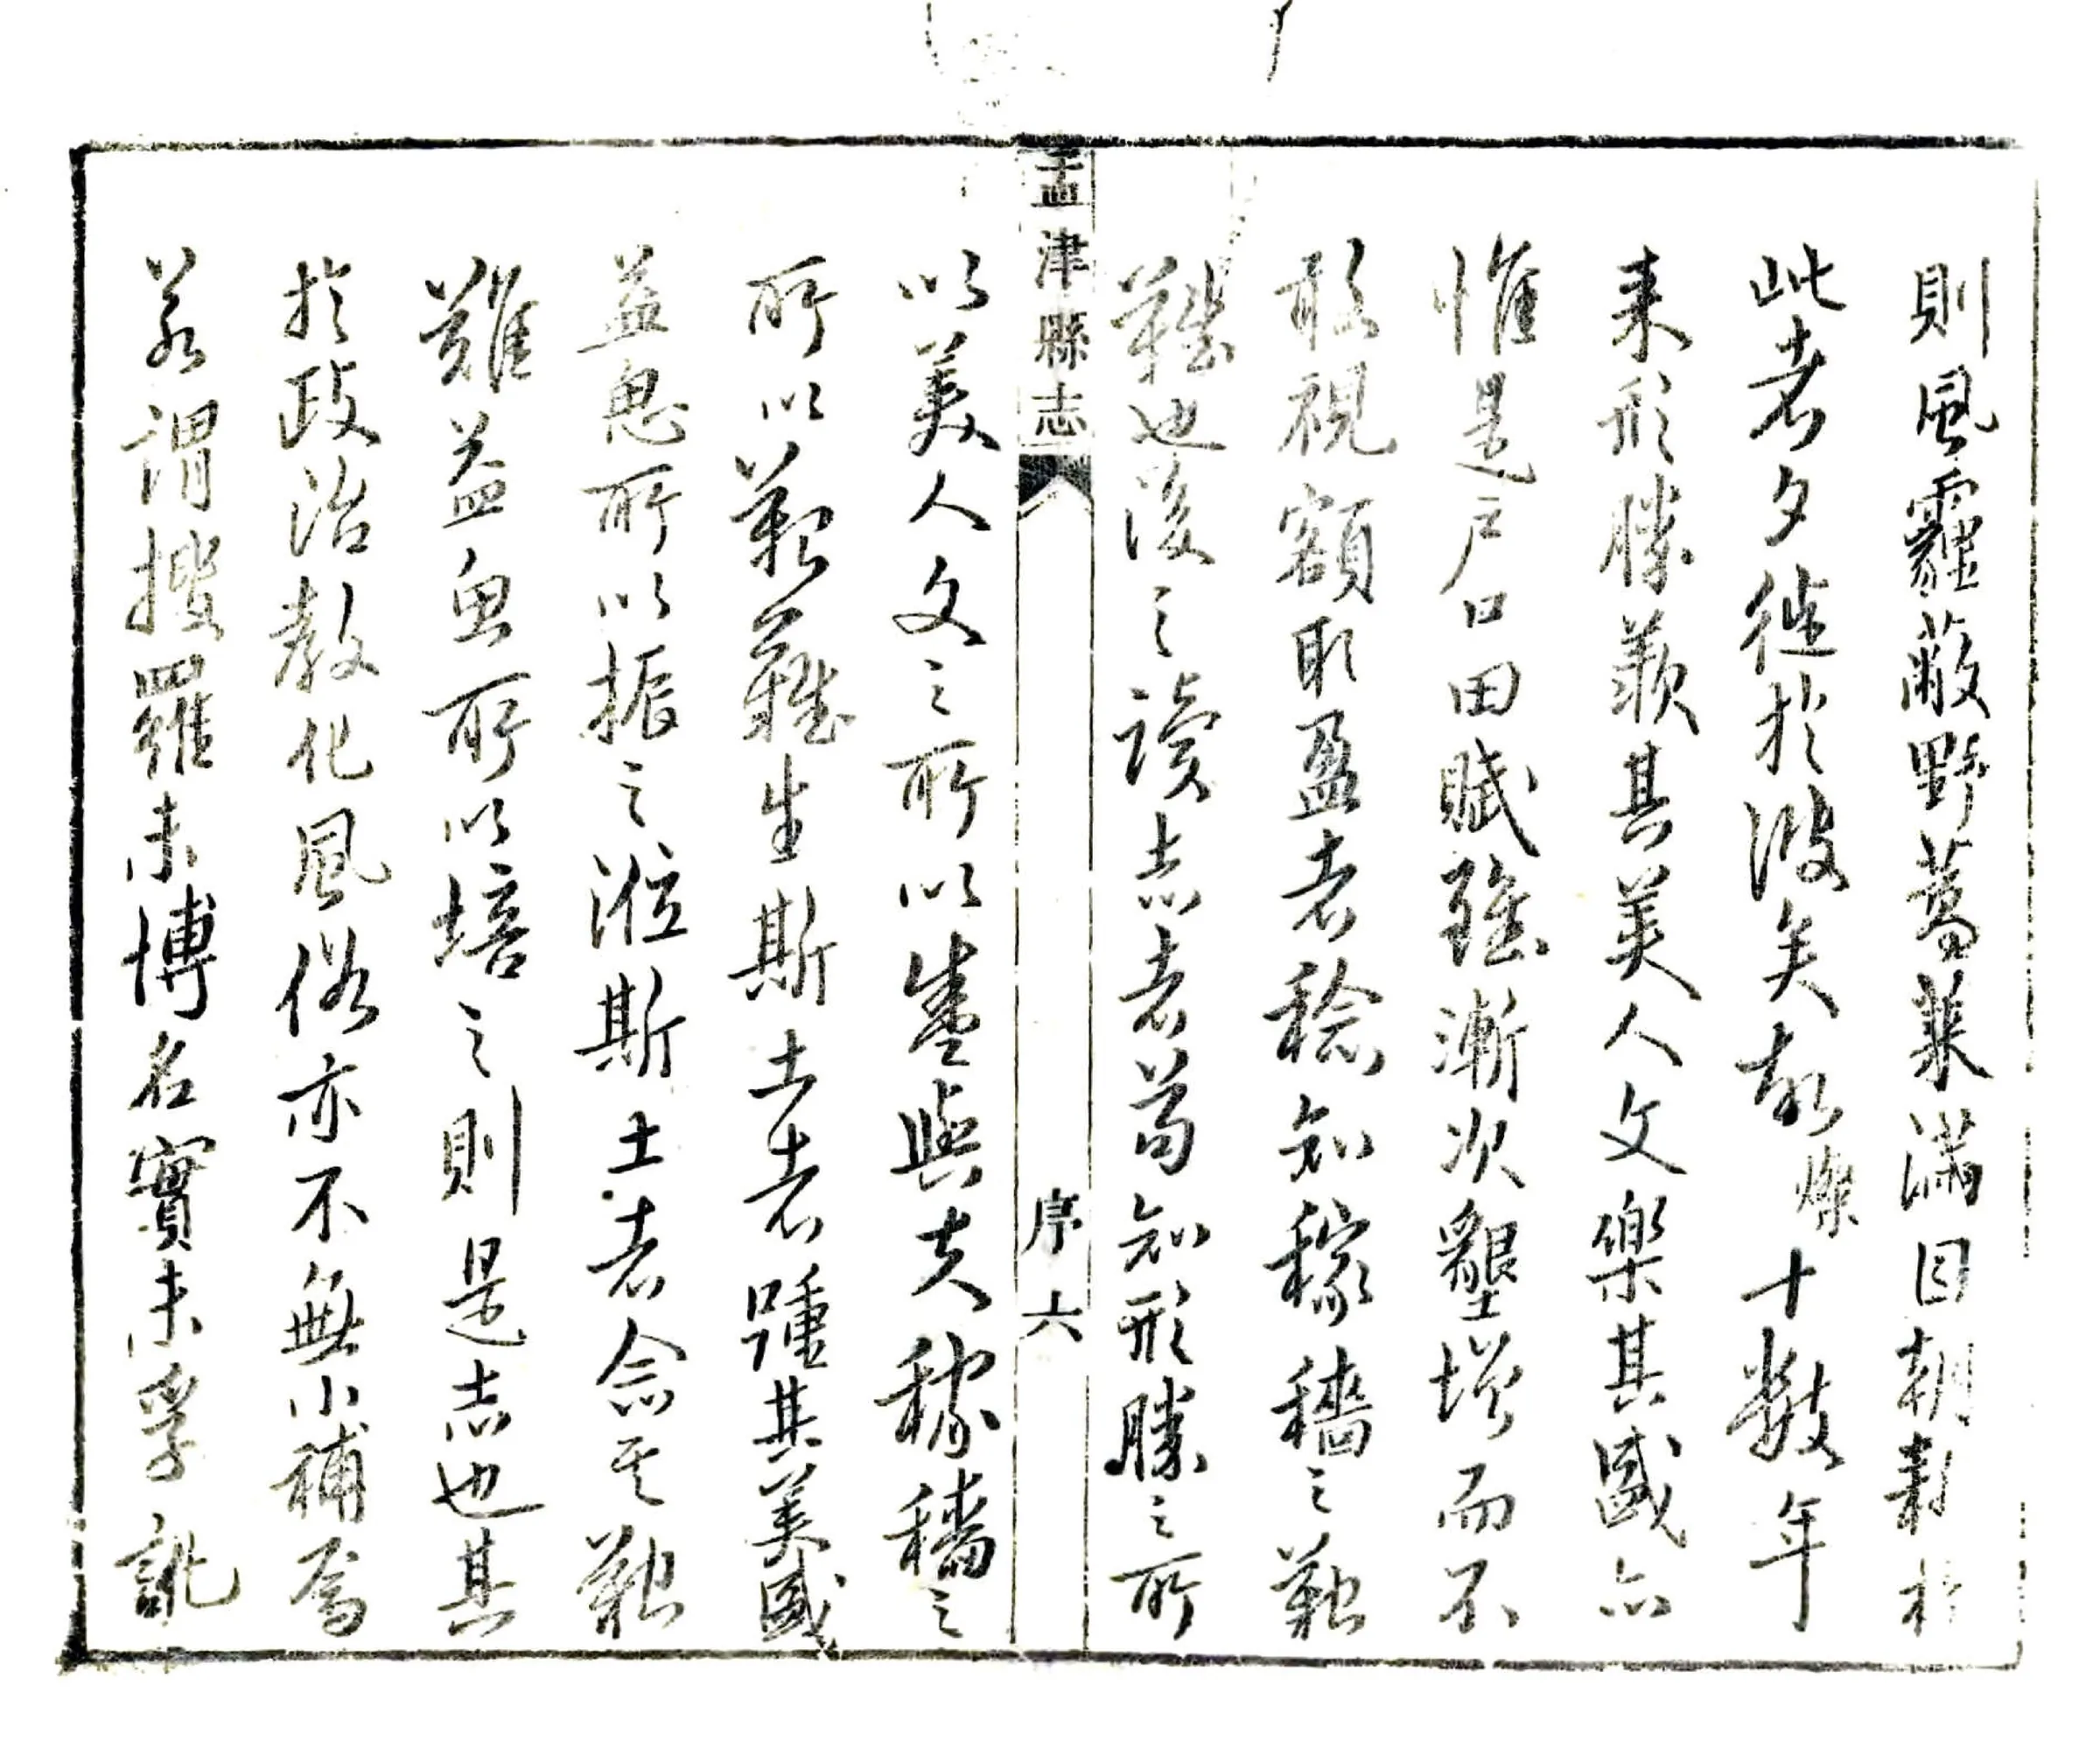 則風霾蔽野蒿萊滿目朝耕於
此者夕徙於彼矣故燦十數年
来形勝羡其美人文樂其盛亦
惟是戶口田賦雖漸次墾增而不
敢視額取盈者稔知稼穡之艱
難也後之讀志者苟知形勝之所
孟津縣志
序
六
以美人文之所以盛與夫稼穡之
所以艱難生斯土者踵其美盛
益思所以振之涖斯土者念其艱
難益思所以培之則是志也其
於政治教化風俗亦不無小補焉
若謂搜羅未博名實未孚訛